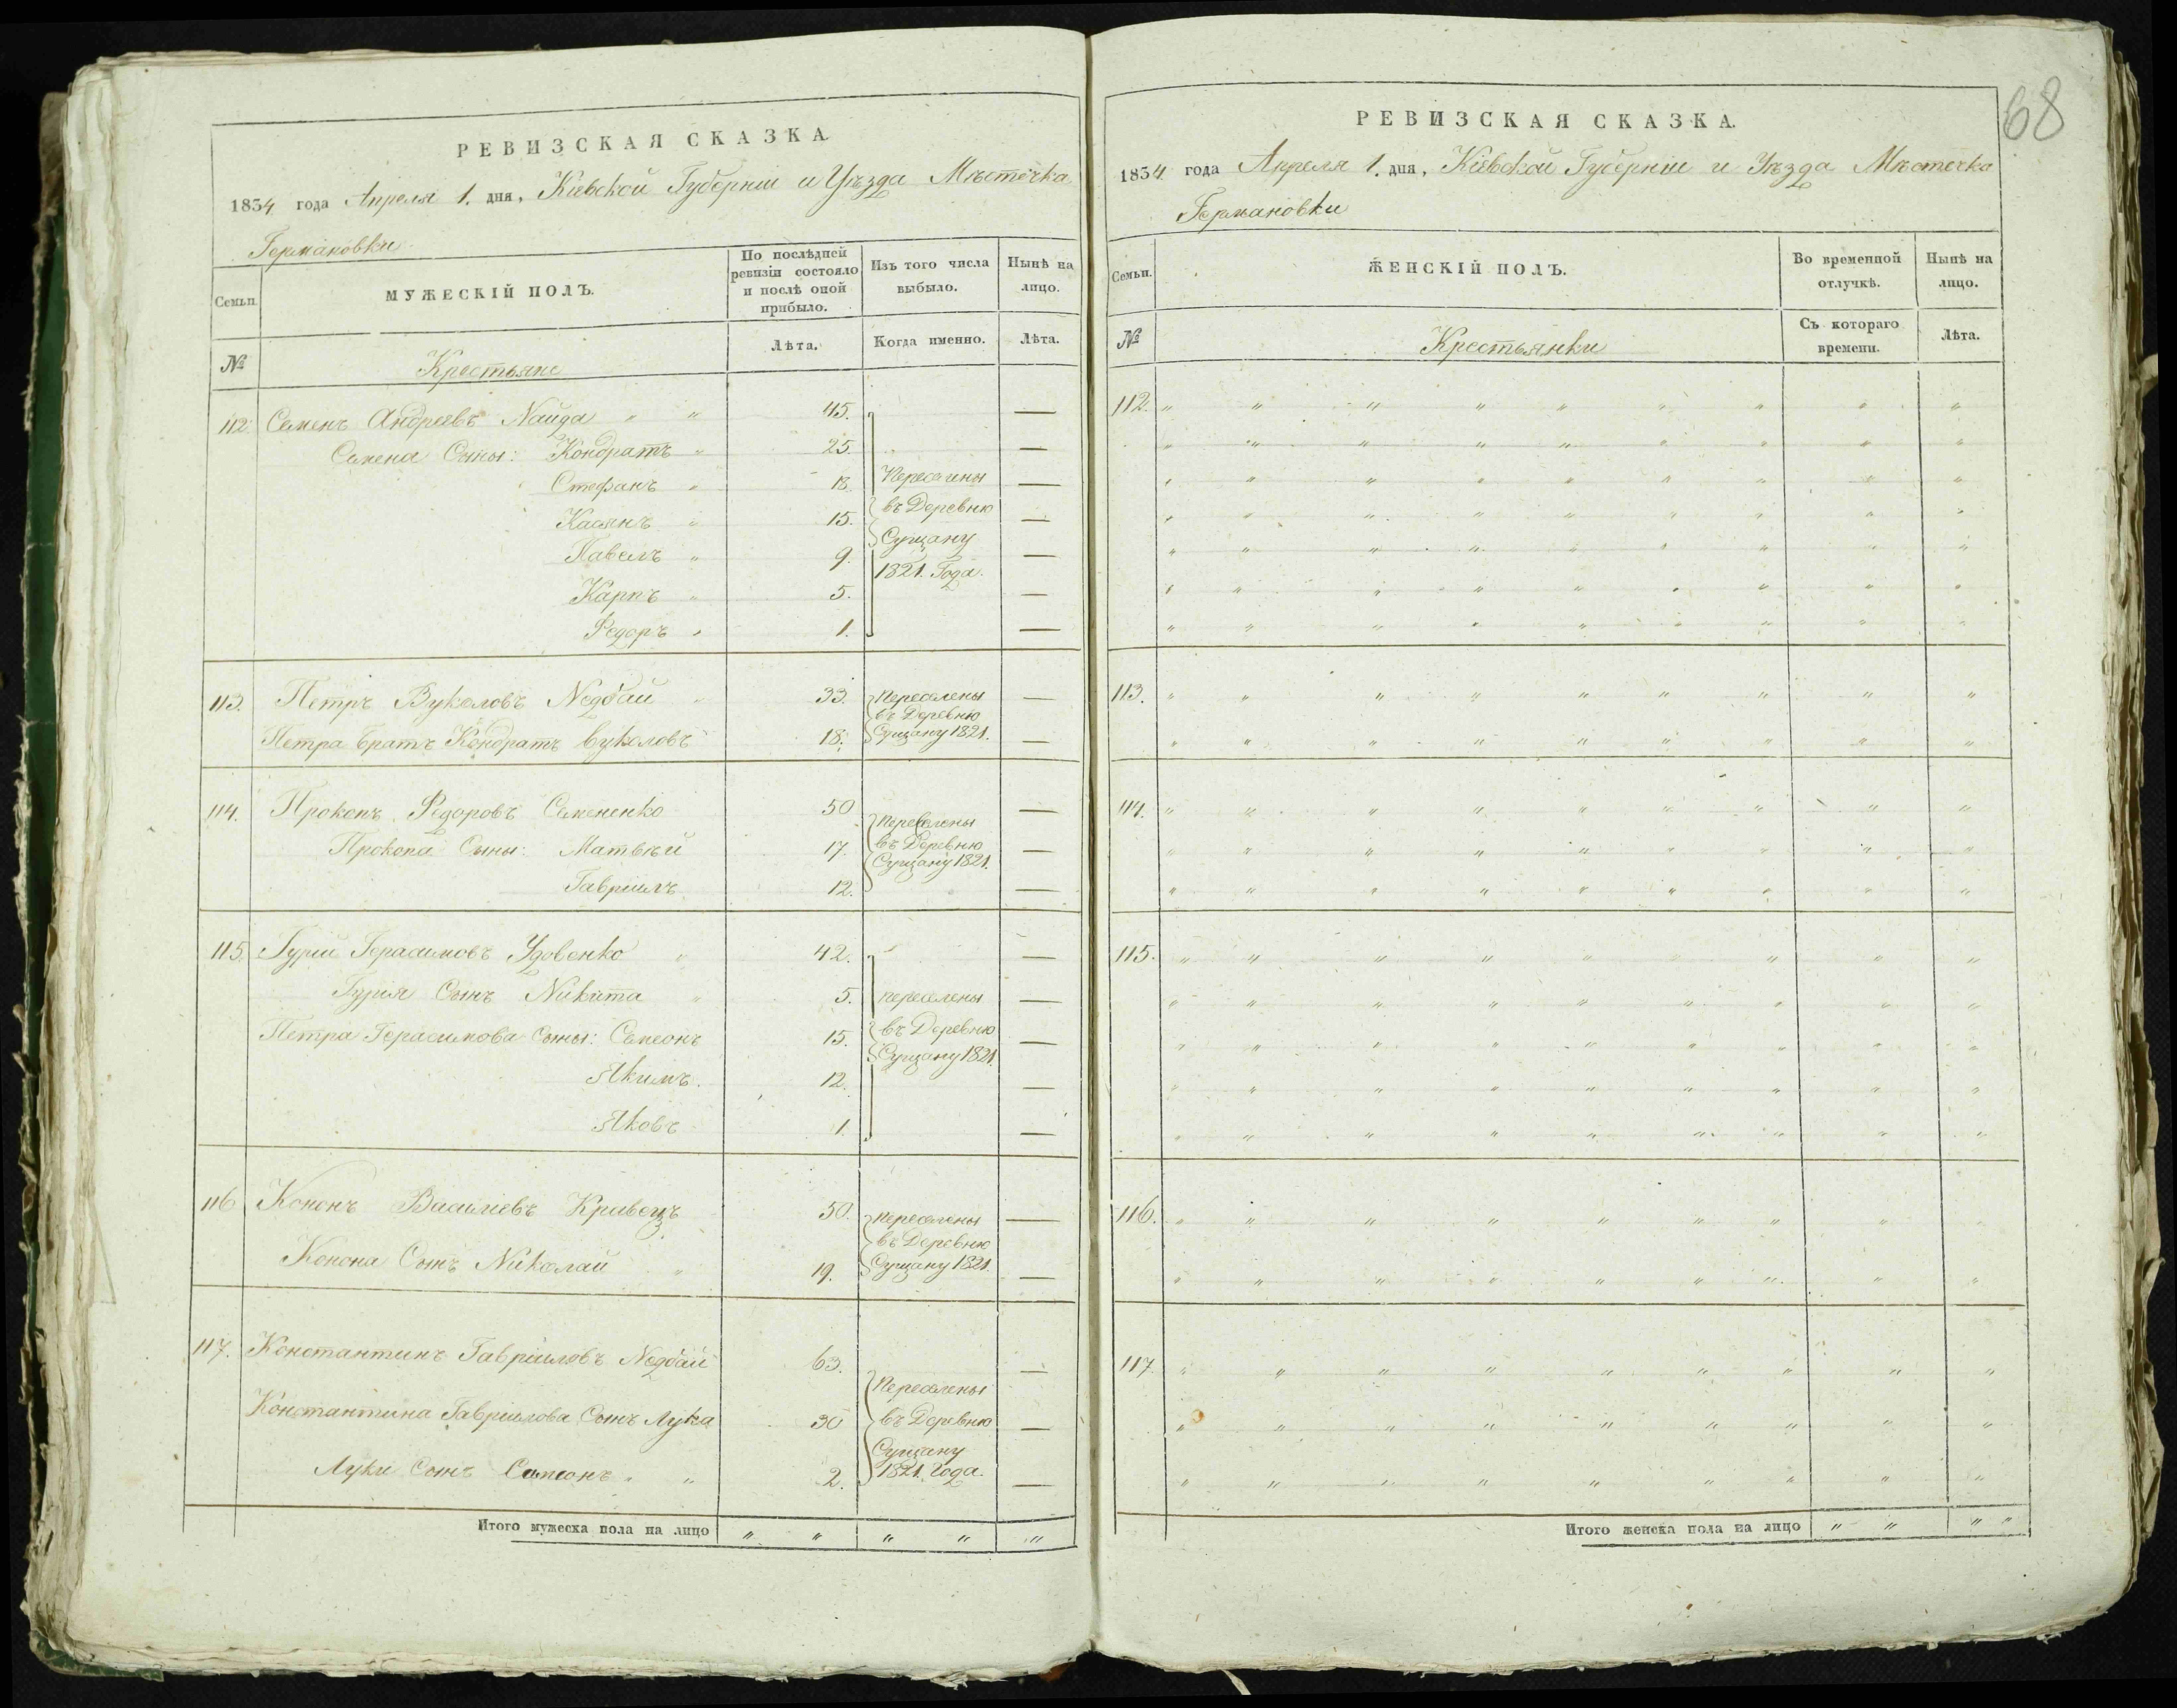 68
РЕВИЗСКАЯ СКАЗКА.
1834 года Апреля 1. дня, Кіевской Губерніи и Уѣзда Мѣстечка
Германовки
Семьи.
МУЖЕСКІЙ ПОЛЪ.
По послѣдней
ревизіи состояло
и послѣ оной
прибыло.
Изъ того числа
выбыло.
Нынѣ на
лицо.
№
Крестьяне
Лѣта.
Когда именно.
Лѣта.
112. Семенъ Андреевъ Найда " " 45. —
Семена Сыны: Кондратъ " 25. —
Стефанъ " 18. Переселены —
Касянъ " 15. въ Деревню —
Сущану
Павелъ " 9. —
1821. Года.
Карпъ " 5. —
Федоръ " 1. —
113. Петръ Вуколовъ Недбай " 33. Переселены —
въ Деревню
Петра братъ Кондратъ Вуколовъ 18. Сущану 1821. —
114. Прокопъ Федоровъ Семененко 50 —
Переселены
Прокопа Сыны: Матвѣй 17. въ Деревню —
Сущану 1821.
Гавріилъ 12. —
115. Гурій Герасимовъ Удовенко " 42. —
Гурія Сынъ Никита " 5. переселены —
Петра Герасимова Сыны: Семеонъ 15. въ Деревню —
Сущану 1821.
Якимъ. 12. —
Яковъ 1. —
116 Кононъ Василіевъ Кравецъ 50. переселены —
въ Деревню
Конона Сынъ Николай " 19. Сущану 1821. —
117. Константинъ Гавріиловъ Недбай 63. —
Переселены
Константина Гавріилова Сынъ Лука 30 въ Деревню —
Сущану
Луки Сынъ Самсонъ " " 2. 1821. Года. —
Итого мужеска пола на лицо " " " " "
РЕВИЗСКАЯ СКАЗКА.
1834 года Апреля 1. дня, Кіевской Губерніи и Уѣзда Мѣстечка
Германовки
Семьи.
ЖЕНСКІЙ ПОЛЪ.
Во временной
отлучкѣ.
Нынѣ на
лицо.
№
Крестьянки
Съ котораго
времени.
Лѣта.
112. " " " " " " " " "
" " " " " " " " "
" " " " " " " " "
" " " " " " " " "
" " " " " " " " "
" " " " " " " " "
" " " " " " " " "
113. " " " " " " " " "
" " " " " " " " "
114. " " " " " " " " "
" " " " " " " " "
" " " " " " " " "
115. " " " " " " " " "
" " " " " " " " "
" " " " " " " " "
" " " " " " " " "
" " " " " " " " "
116. " " " " " " " " "
" " " " " " " " "
117. " " " " " " " " "
" " " " " " " " "
" " " " " " " " "
Итого женска пола на лицо " " " "